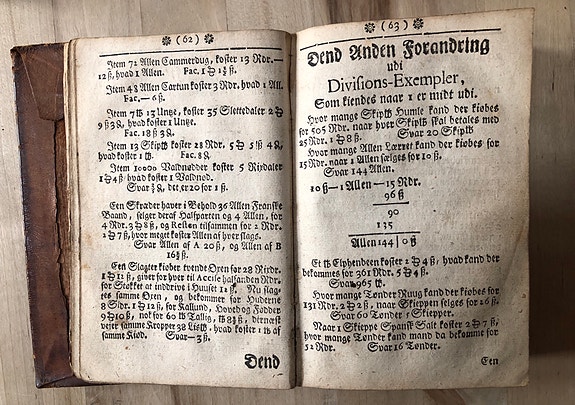 ❋ (62) ❋
Item 72 Allen Cammerdug, koster 13 Rdr.
12 ß, hvad 1 Allen. Fac. 1 ₻ 1½ ß.
Item 48 Allen Cartun koster 3 Rdr. hvad 1 All.
Fac.— 6 ß.
Item 7 ℔ 13 Untze, koster 35 Slettedaler 2 ₻
9 ß 3 ₰, hvad koster 1 Untze.
Fac. 18 ß 3 ₰.
Item 13 Skip℔ koster 28 Rdr. 5 ₻ 5 ß 4 ₰,
hvad koster 1 ℔. Fac. 8 ₰.
Item 10000 Valdnødder koster 5 Rixdaler
1 ₻ 4 ß hvad koster 1 Valdnød.
Svar ₰, det er 20 for 1 ß.
Een Skræder haver i Behold 36 Allen Franske
Baand, selger deraf Halfparten og 4 Allen, for
4 Rdr. 3 ₻ 8 ß, og Resten tilsammen for 2 Rdr.
1 ₻ 7 ß, hvor meget koster 1 Allen af hver slags.
Svar Allen af A 20 ß, og Allen af B
16½ ß.
Een Slagter kiøber tvende Øxen for 28 Rixdr.
1 ₻ 11 ß, giver for hver til Accise halfanden Rdr.
for Stokket at inddrive i Huuset 11 ß. Nu slag-
tes samme Øxen, og bekommer for Huderne
8 Sldr. 1 ₻ 12 ß, for Kallund, Hoved og Fødder
9 ₻ 10 ß, nok for 60 ℔ Tallig, ℔ 8½ ß, dernæst
vejer samme Kropper 38 Lis℔, hvad koster 1 ℔ af
samme Kiød. Svar—3 ß.
Dend
❋ (63) ❋
Dend Anden Forandring
udi
Divisions-Exempler,
Som kiendes naar 1 er midt udi.
Hvor mange Skip℔ Humle kand der kiøbes
for 505 Rdr. naar hver Skip℔ skal betales med
25 Rdr. 1 ₻ 8 ß. Svar 20 Skip℔
Hvor mange Allen Lærret kand der kiøbes for
15 Rdr. naar 1 Allen sælges for 10 ß.
Svar 144 Allen.
10 ß—1 Allen—15 Rdr.
96 ß
90
135
Allen 144 | 0 ß
Et ℔ Elphendeen koster 1 ₻ 4 ß, hvad kand der
bekommes for 361 Rdr. 5 ₻ 4 ß.
Svar 965 ℔.
Hvor mange Tønder Ruug kand der kiøbes for
131 Rdr. 2 ₻ 2 ß, naar Skieppen selges for 26 ß.
Svar 60 Tønder 5 Skiepper.
Naar 1 Skieppe Spansk Salt koster 2 ₻ 7 ß,
hvor mange Tønder kand mand da bekomme for
52 Rdr. Svar 16 Tønder.
Een